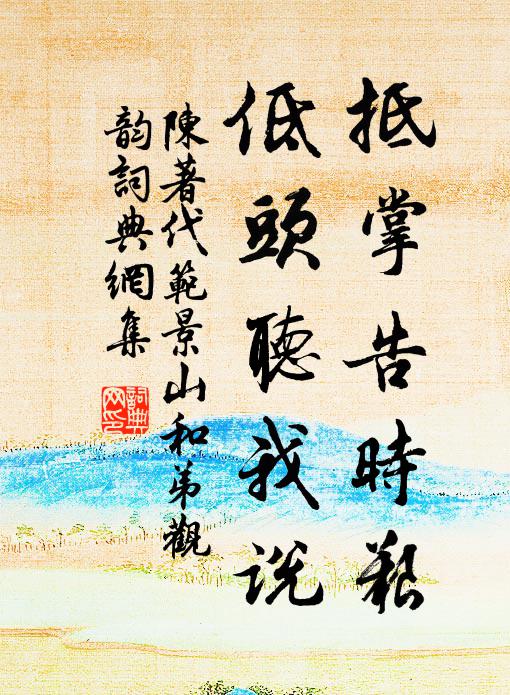 抵掌告時艱
低頭聽我說
陳著代範景山和弟觀
韵詞典網集
詞典
网印